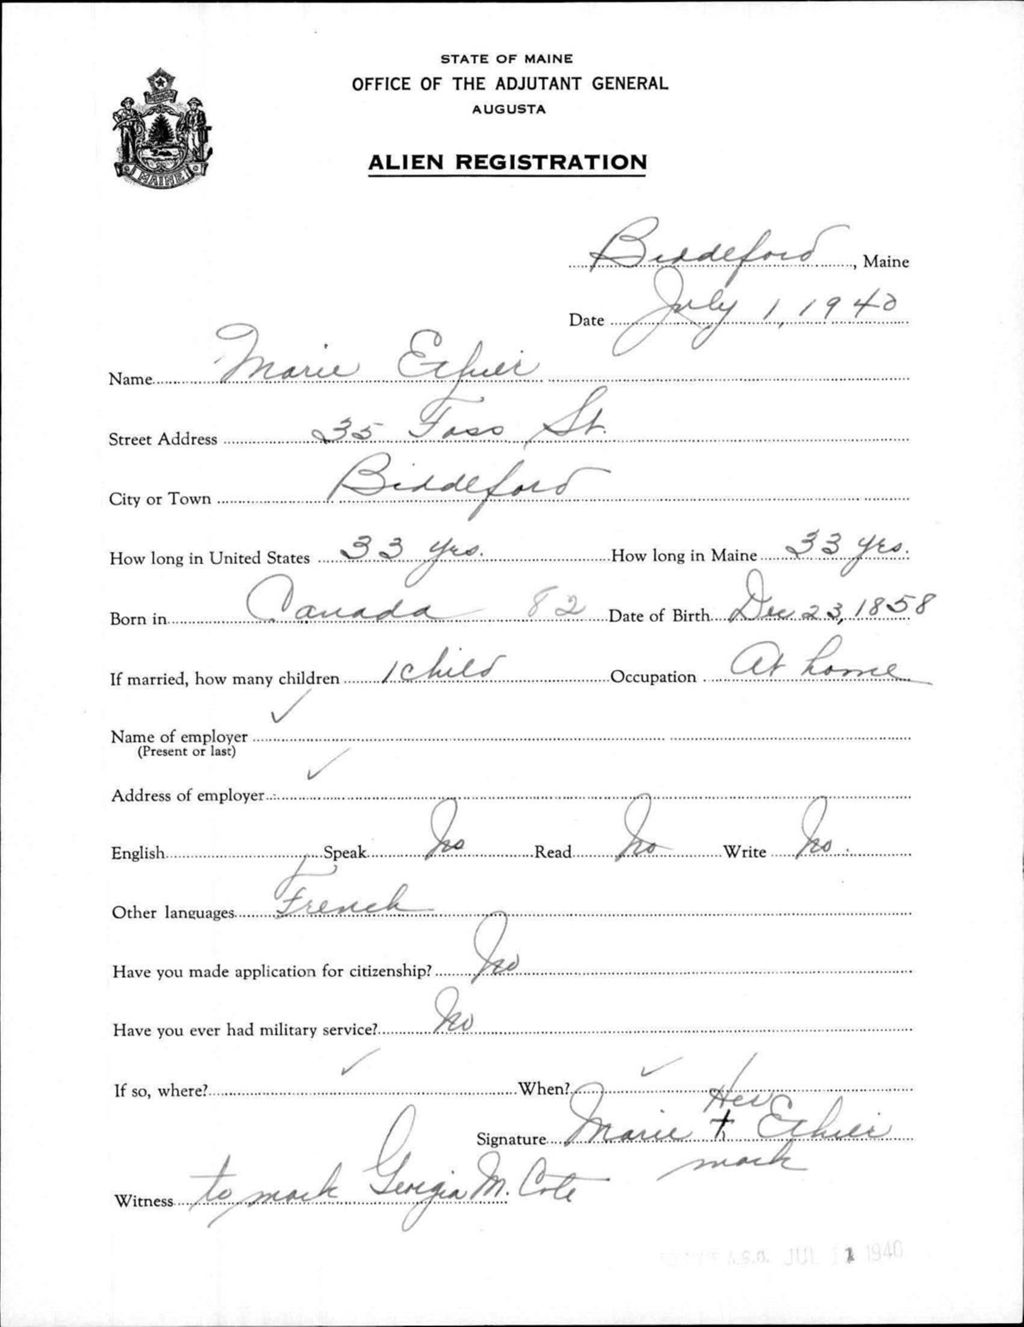 STATE OF MAINE
OFFICE OF THE ADJUTANT GENERAL
AUGUSTA
ALIEN REGISTRATION
MAINE
Biddeford, Maine
Date July 1, 1940
Name Marie Ethier
Street Address 35 Foss St.
City or Town Biddeford
How long in United States 33 yrs. How long in Maine 33 yrs.
Born in Canada 82 Date of Birth Dec 23, 1858
If married, how many children 1 child Occupation At home
Name of employer
(Present or last)
Address of employer
English Speak No Read No Write No
Other languages French
Have you made application for citizenship? No
Have you ever had military service? No
If so, where? When?
Her
Signature Marie + Ethier
mark
Witness to mark Georgia M. Cote
A.G.O. JUL 1940